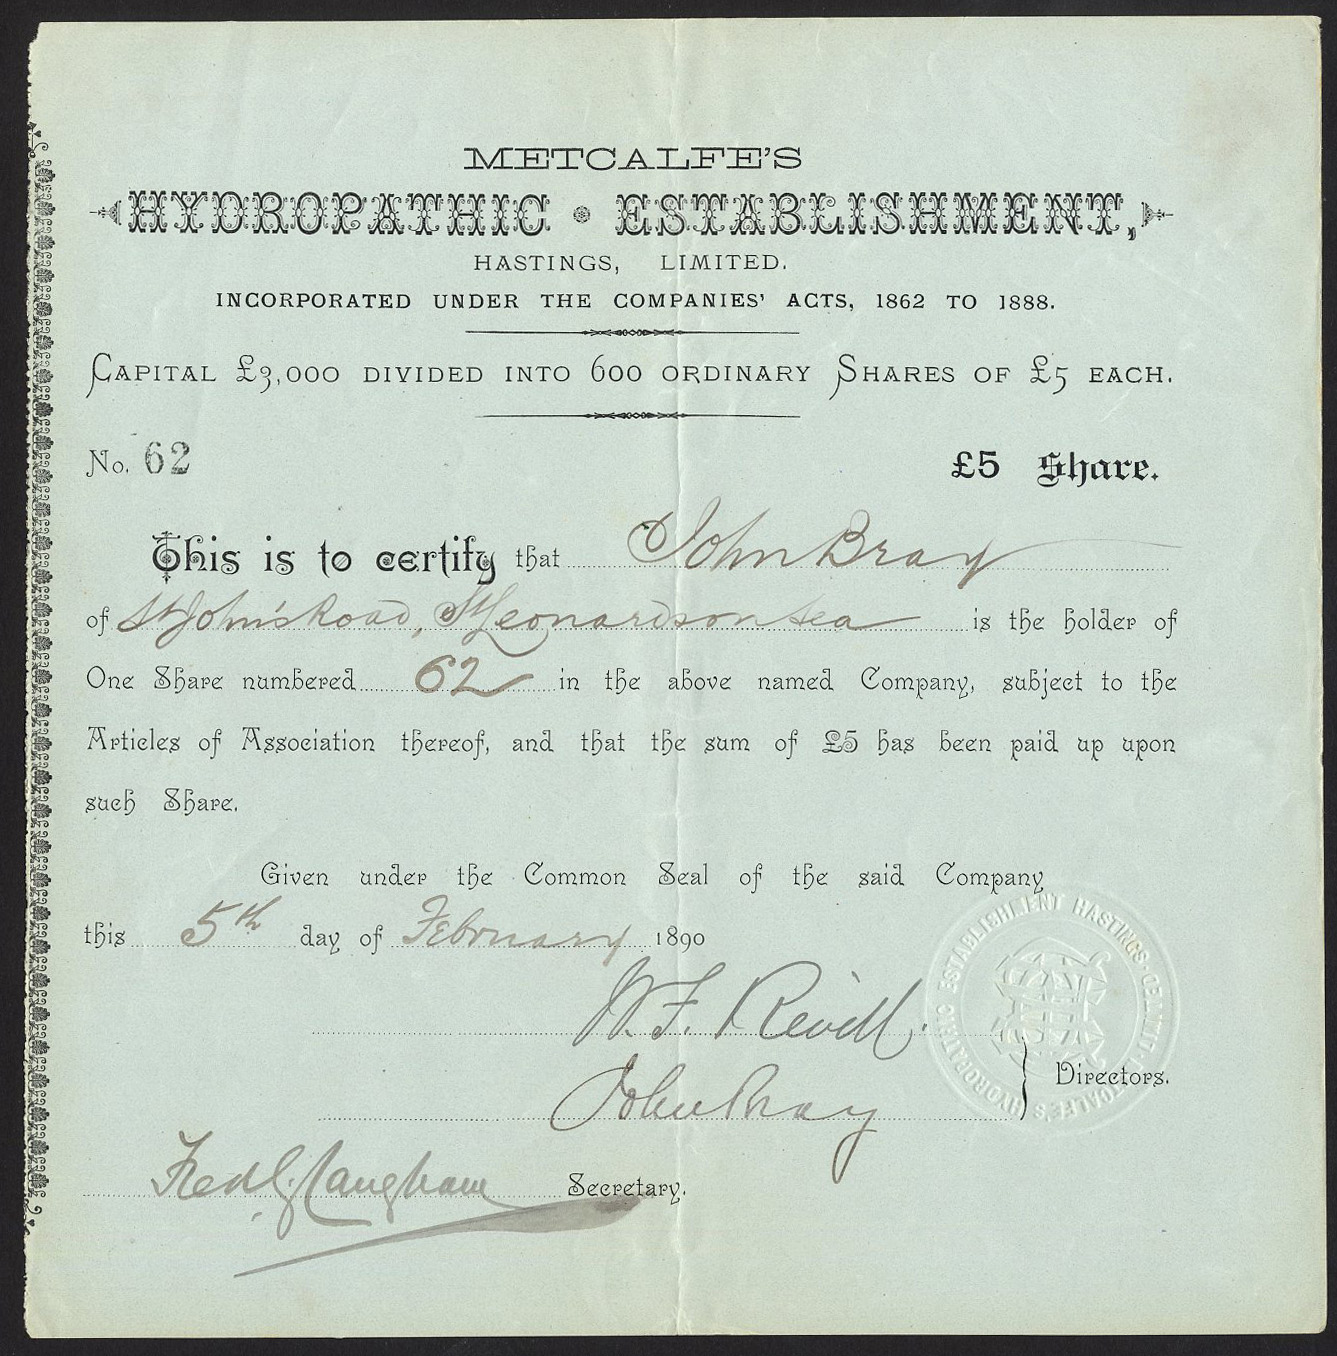 METCALFE'S
HYDROPATHIC ESTABLISHMENT,
HASTINGS, LIMITED.
INCORPORATED UNDER THE COMPANIES' ACTS, 1862 TO 1888.
CAPITAL £3,000 DIVIDED INTO 600 ORDINARY SHARES OF £5 EACH.
No. 62 £5 Share.
This is to certify that John Bray
of St John's Road, St Leonards on Sea is the holder of
One Share numbered 62 in the above named Company, subject to the
Articles of Association thereof, and that the sum of £5 has been paid up upon
such Share.
Given under the Common Seal of the said Company
this 5th day of February 1890
W. F. Revill.
John Bray
Directors.
Fred G. Langham Secretary.
METCALFE'S HYDROPATHIC ESTABLISHMENT HASTINGS · LIMITED ·